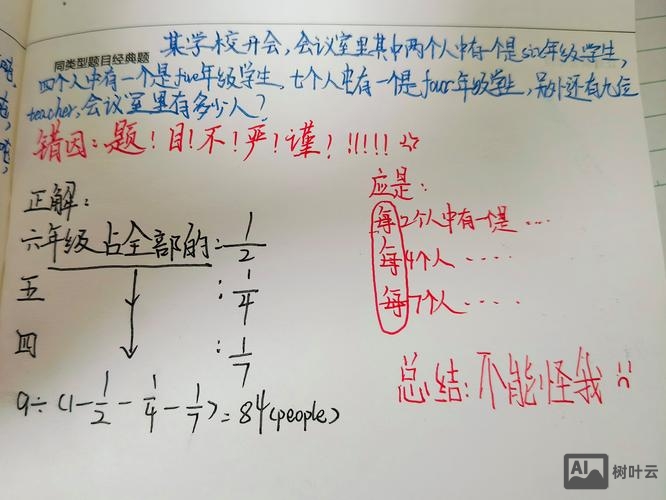 同类型题目经典题
某学校开会,会议室里其中两个人中有一个是six年级学生,
四个人中有一个是five年级学生,七个人中有一个是four年级学生,另外还有九位
teacher,会议室里有多少人?
错因:题!目!不!严!谨!!!!!!
正解:
六年级占全部的:1/2
五 :1/4
四 :1/7
9÷(1-1/2-1/4-1/7)=84(people)
应是:
每2个人中有一个是....
每4个人.....
每7个人....
总结:不能怪我
AI 树叶云